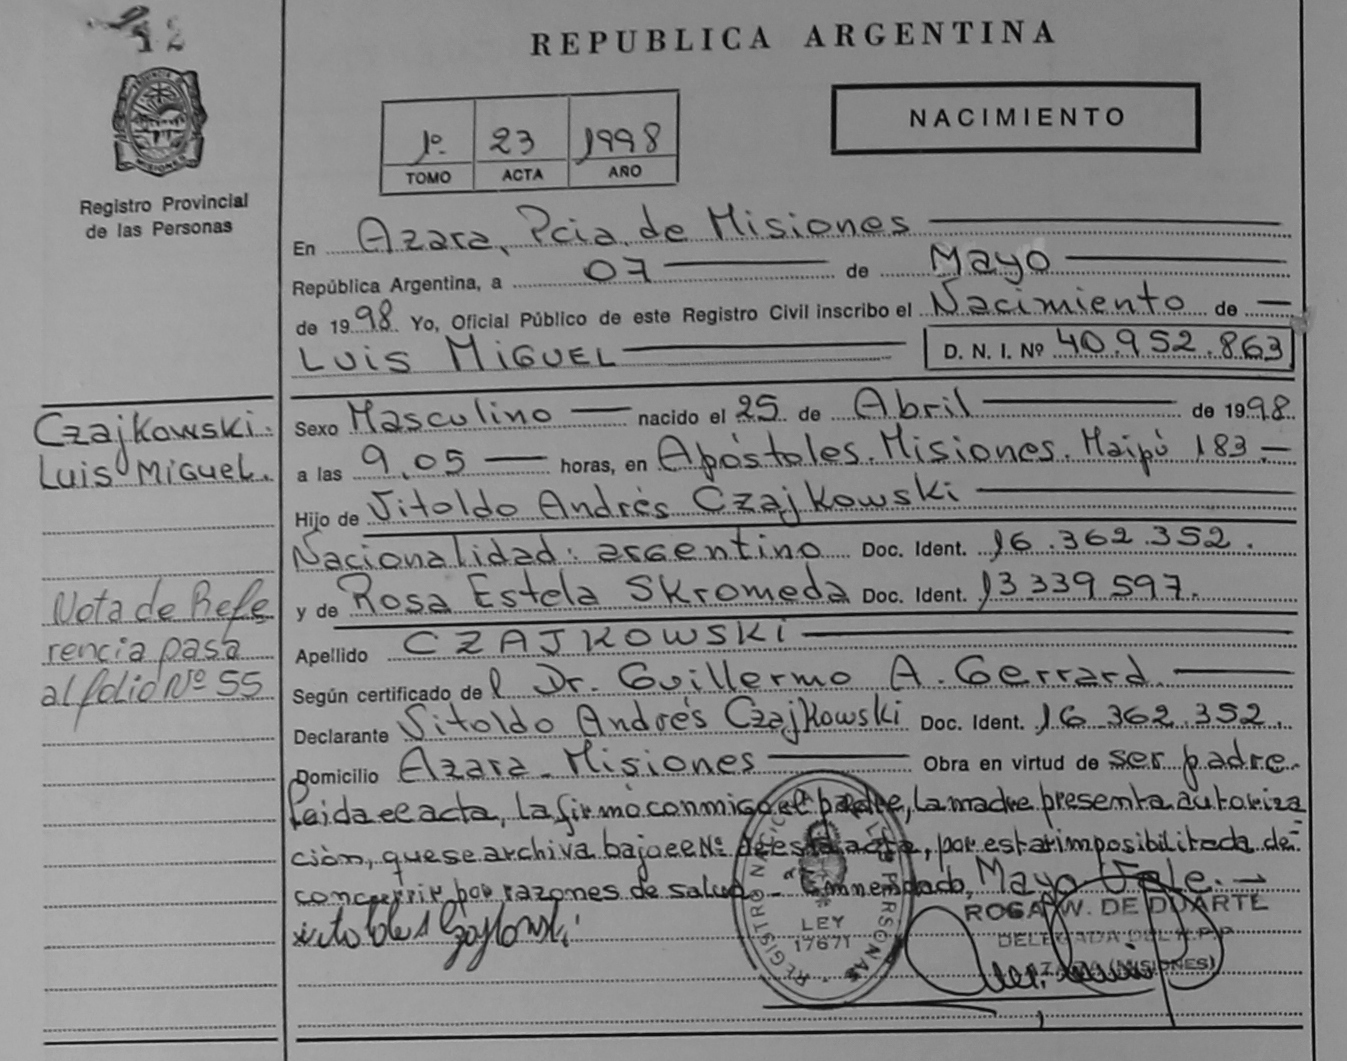 REPUBLICA ARGENTINA
NACIMIENTO
1º 23 1998
TOMO ACTA AÑO
Registro Provincial
de las Personas
En Azara, Pcia. de Misiones
República Argentina, a 07 de Mayo
de 1998. Yo, Oficial Público de este Registro Civil inscribo el Nacimiento de
LUIS MIGUEL D. N. I. Nº 40.952.863
Czajkowski.
Luis Miguel.
Sexo Masculino nacido el 25 de Abril de 1998.
a las 9,05 horas, en Apóstoles. Misiones. Maipú 183.-
Hijo de Vitoldo Andrés Czajkowski
Nacionalidad: argentino Doc. Ident. 16.362.352.
y de Rosa Estela Skromeda Doc. Ident. 13339597.
Apellido CZAJKOWSKI
Según certificado del Dr. Guillermo A. Gerrard.
Declarante Vitoldo Andrés Czajkowski Doc. Ident. 16.362.352.
Domicilio Azara - Misiones Obra en virtud de ser padre.
Leida el acta, la firmó conmigo el padre, la madre presenta autoriza
ción, que se archiva bajo el Nº de esta acta, por estar imposibilitada de
concurrir por razones de salud. - Enmendado, Mayo Vale. -
Nota de Refe
rencia pasa
al folio Nº 55
REGISTRO NACIONAL DE LAS PERSONAS
LEY
17671
ROSA W. DE DUARTE
DELEGADA DEL R.P.P
AZARA (MISIONES)